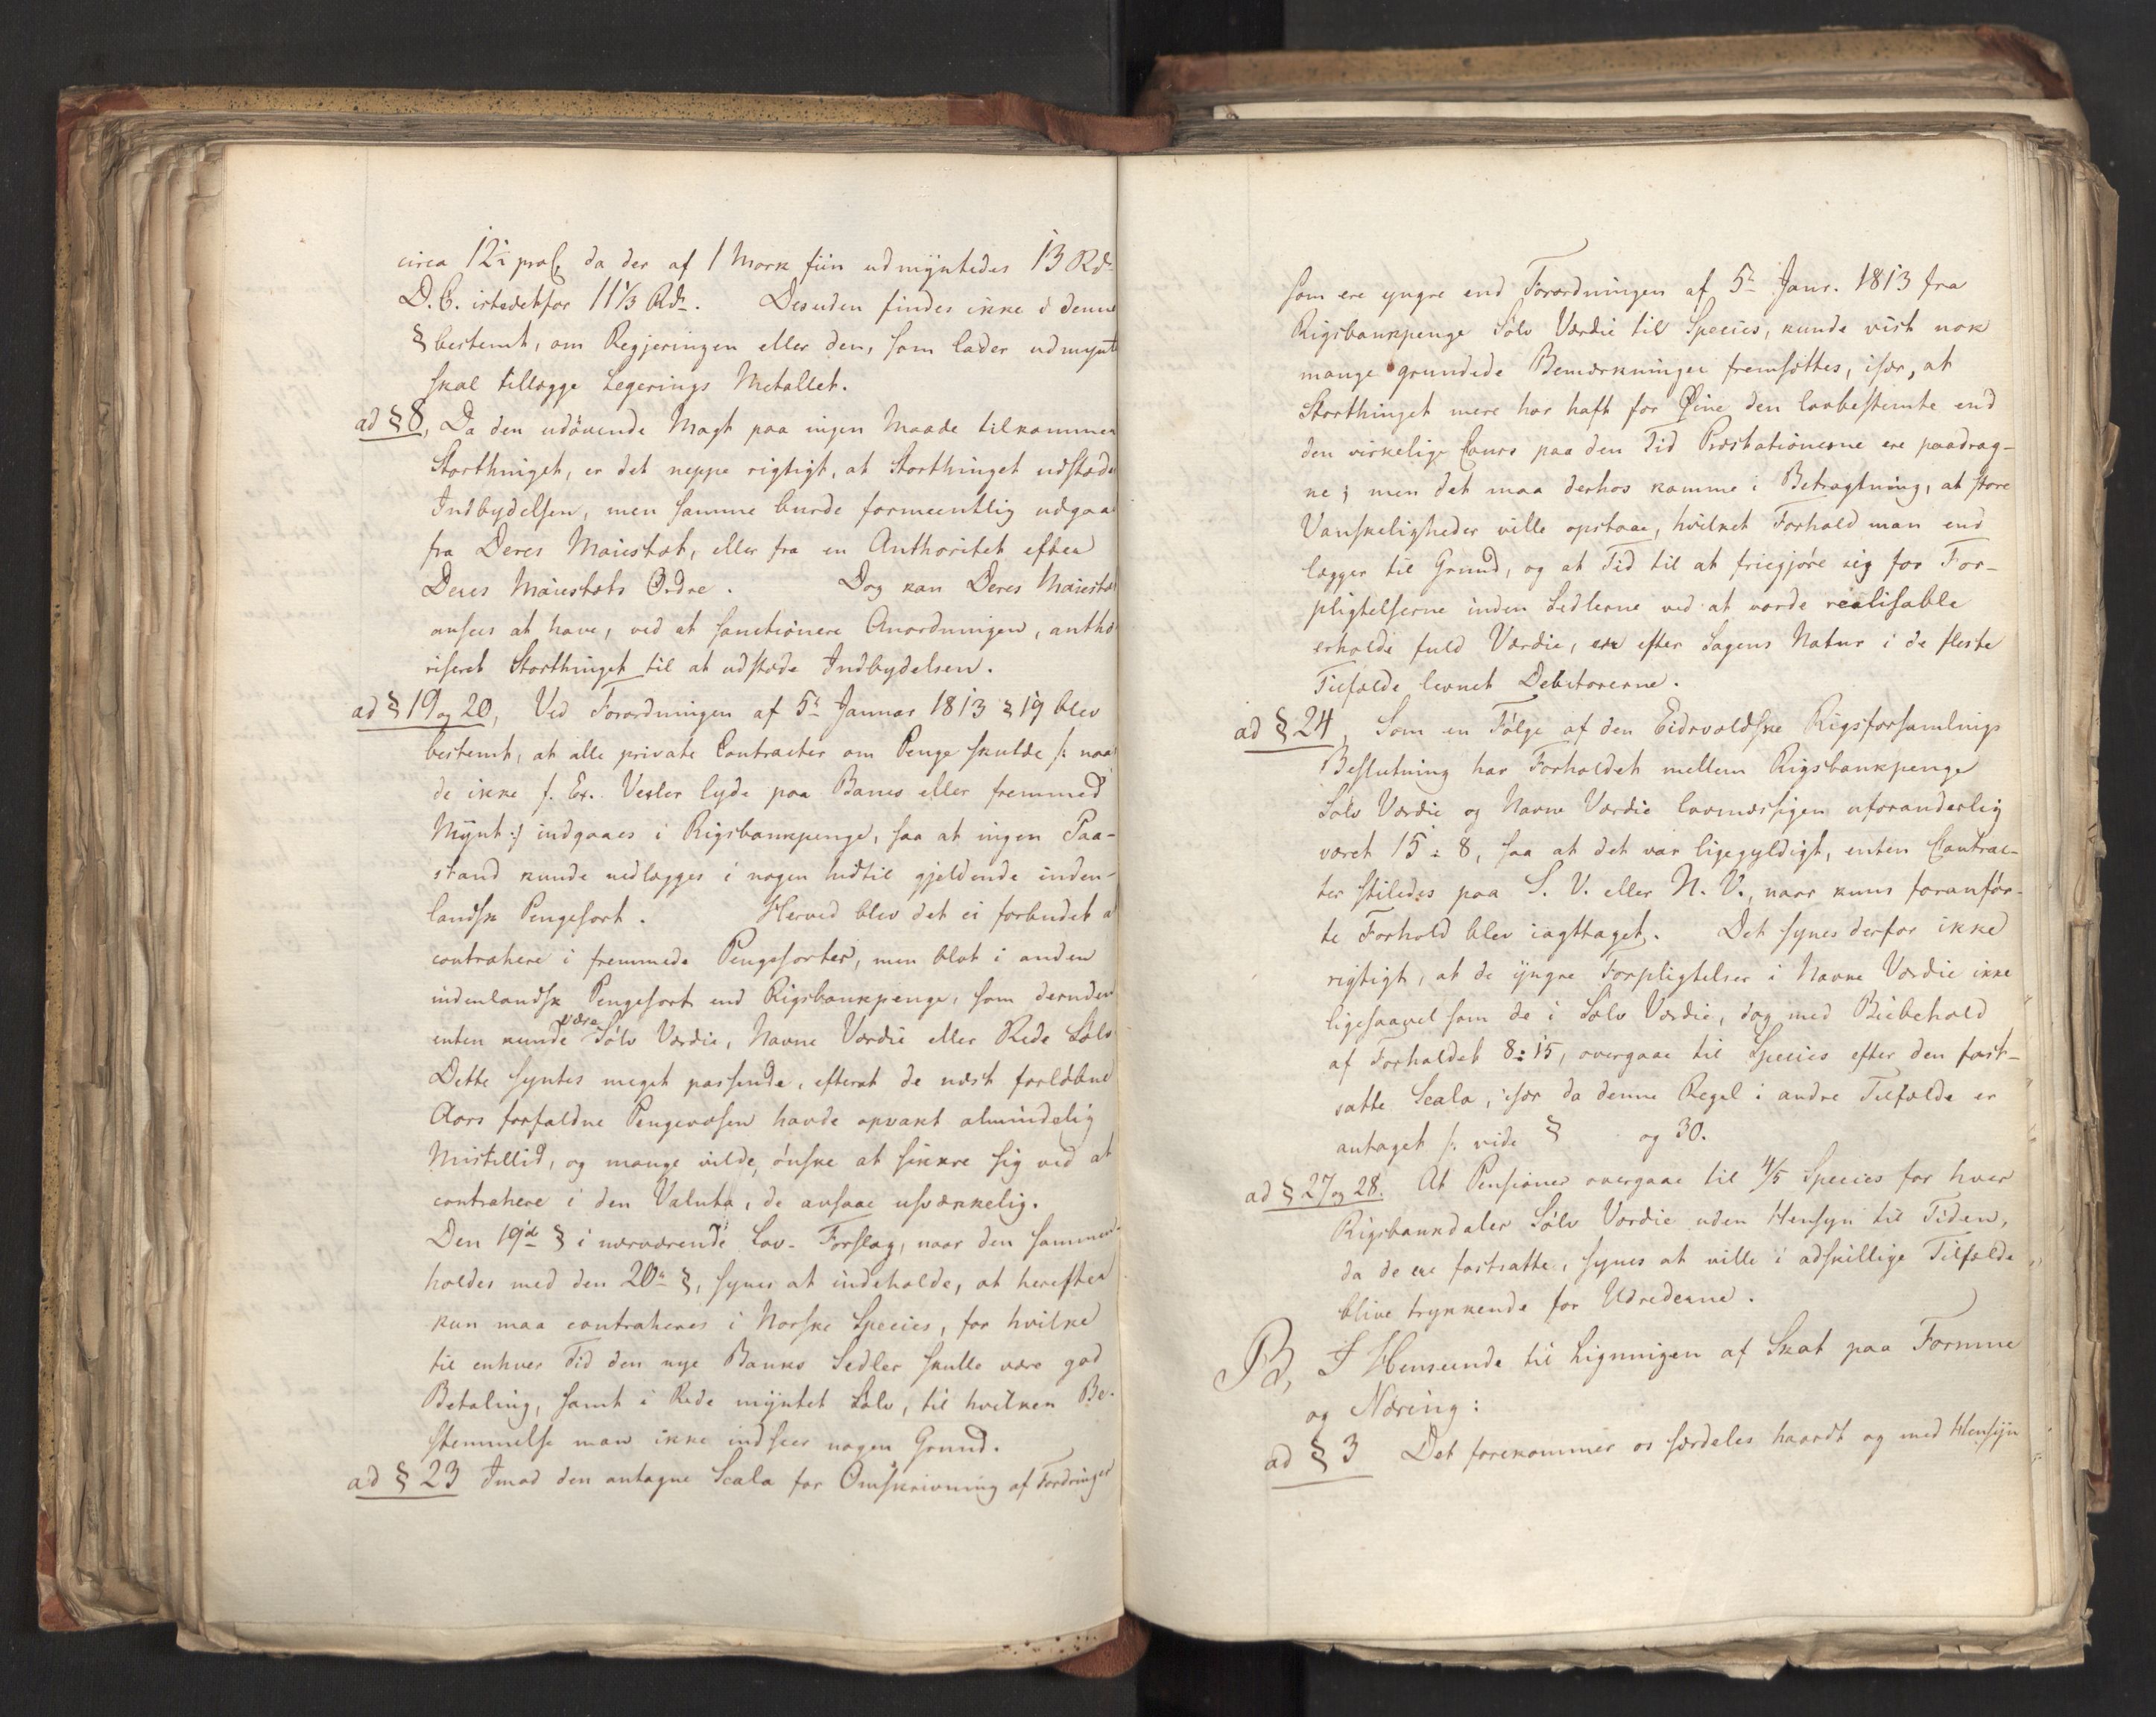 circa 12½ proC, da der af 1 Mark fiin udmyntedes 13 Rdr.
D. C. istedetfor 11⅓ Rdr. Desuden findes ikke i denne
§ bestemt, om Regjeringen eller den, som lader udmynte
skal tillægge Legerings Metallet.
ad § 8, Da den udövende Magt paa ingen Maade tilkommer
Storthinget, er det neppe rigtigt, at Storthinget udstæder
Indbydelsen, men samme burde formeentlig udgaae
fra Deres Maiestæt, eller fra en Authoritet efter
Deres Maiestæts Ordre. Dog kan Deres Maiestæt
ansees at have, ved at sanctionere Anordningen, autho
riseret Storthinget til at udstæde Indbydelsen.
ad § 19 og 20, Ved Forordningen af 5te Januar 1813 § 19 blev
bestemt, at alle private Contracter om Penge skulde /: naar
de ikke f. Ex. Vexler lyde paa Banco eller fremmed
Mynt :/ indgaaes i Rigsbankpenge, saa at ingen Paa-
stand kunde nedlægges i nogen hidtil gjeldende inden-
landsk Pengesort. Herved blev det ei forbudet at
contrahere i fremmede Pengesorter, men blot i anden
indenlandsk Pengesort end Rigsbankpenge, som desuden
enten kunde være Sölv Værdie, Navne Værdie eller Rede Sölv
Dette syntes meget passende, efterat de næst forlöbne
Aars forfaldne Pengevæsen havde opvakt almindelig
Mistillid, og mange vilde önske at sikkre sig ved at
contrahere i den Valuta, de ansaae usvækkelig.
Den 19de § i nærværende Lov-Forslag, naar den sammen-
holdes med den 20de §, synes at indeholde, at herefter
kun maa contraheres i Norske Species, for hvilke
til enhver Tid den nye Banks Sedler skulle være god
Betaling, samt i Rede myntet Sölv, til hvilken Be-
stemmelse man ikke indseer nogen Grund.
ad § 23 Imod den antagne Scala for Omskrivning af Fordringer
som ere yngre end Forordningen af 5te Janr. 1813 fra
Rigsbankpenge Sölv Værdie til Species, kunde vist nok
mange grundede Bemærkninger fremsættes, især, at
Storthinget mere har haft for Øine den lovbestemte end
den virkelige Cours paa den Tid Præstationerne ere paadrag-
ne; men det maa derhos komme i Betragtning, at store
Vanskeligheder ville opstaae, hvilket Forhold man end
lægger til Grund, og at Tid til at friegjöre sig for For-
pligtelserne inden Sedlerne ved at vorde realisable
erholde fuld Værdie, er efter Sagens Natur i de fleste
Tilfælde levnet Debitorerne.
ad § 24, Som en Fölge af den Eidsvoldske Rigsforsamlings
Beslutning har Forholdet mellem Rigsbankpenge
Sölv Værdie og Navne Værdie lovmæssigen uforanderlig
været 15 : 8, saa at det var ligegyldigt, enten Contrac-
ter stiledes paa S. V. eller N. V., naar kuns foranför-
te Forhold blev iagttaget. Det synes derfor ikke
rigtigt, at de yngre Forpligtelser i Navne Værdie ikke
ligesaavel som de i Sölv Værdie, dog med Biebehold
af Forholdet 8 : 15, overgaae til Species efter den fast-
satte Scala, især da denne Regel i andre Tilfælde er
antaget /: vide § og 30.
ad § 27 og 28. At Pensioner overgaae til 4/5 Species for hver
Rigsbankdaler Sölv Værdie uden Hensyn til Tiden,
da de ere fastsatte, synes at ville i adskillige Tilfælde
blive trykkende for Udrederne.
B, I Henseende til Ligningen af Skat paa Formue
og Næring:
ad § 3 Det forekommer os særdeles haardt og med Hensyn